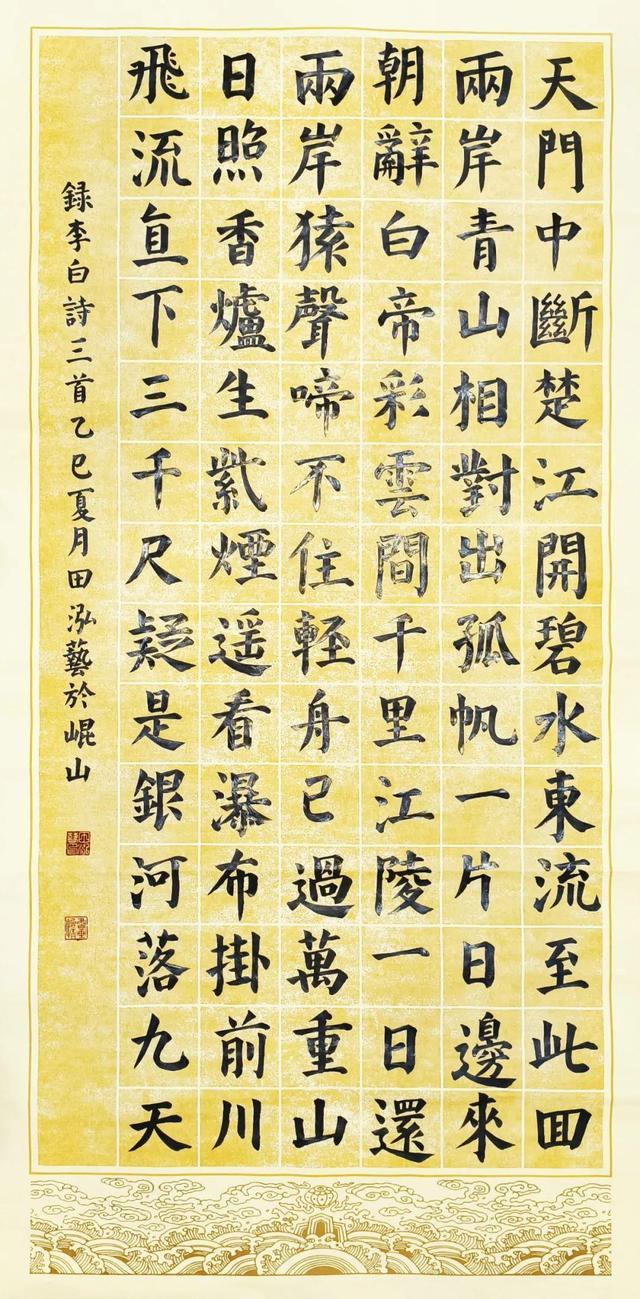 天門中斷楚江開碧水東流至此回
兩岸青山相對出孤帆一片日邊來
朝辭白帝彩雲間千里江陵一日還
兩岸猿聲啼不住輕舟已過萬重山
日照香爐生紫煙遥看瀑布掛前川
飛流直下三千尺疑是銀河落九天
録李白詩三首乙巳夏月田泓藝於崐山